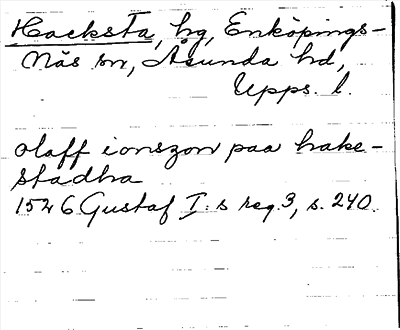 Hacksta, hg, Enköpings-
Näs sn, Åsunda hd,
Upps. l.
olaff ionszon paa hake-
stadha
1526 Gustaf I:s reg. 3, s. 240.